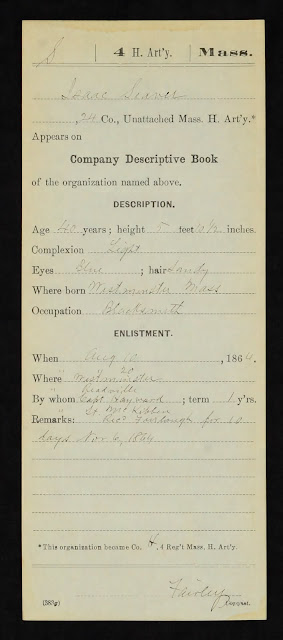 S | 4 H. Art'y. | Mass.
Isaac Seaver
, 24 Co., Unattached Mass. H. Art'y.*
Appears on
Company Descriptive Book
of the organization named above.
DESCRIPTION.
Age 40 years; height 5 feet 10½ inches.
Complexion Light
Eyes Blue ; hair Sandy
Where born Westminster Mass
Occupation Blacksmith
ENLISTMENT.
When Aug 10 , 1864.
" " 20
Where Westminster
" Readville
By whom Capt Hayward ; term 1 y'rs.
" Lt McKibbin
Remarks: Rec'd Furlough for 10
days Nov 6, 1864
*This organization become Co. H, 4 Reg't Mass. H. Art'y.
Fairley
(383g) Copyist.